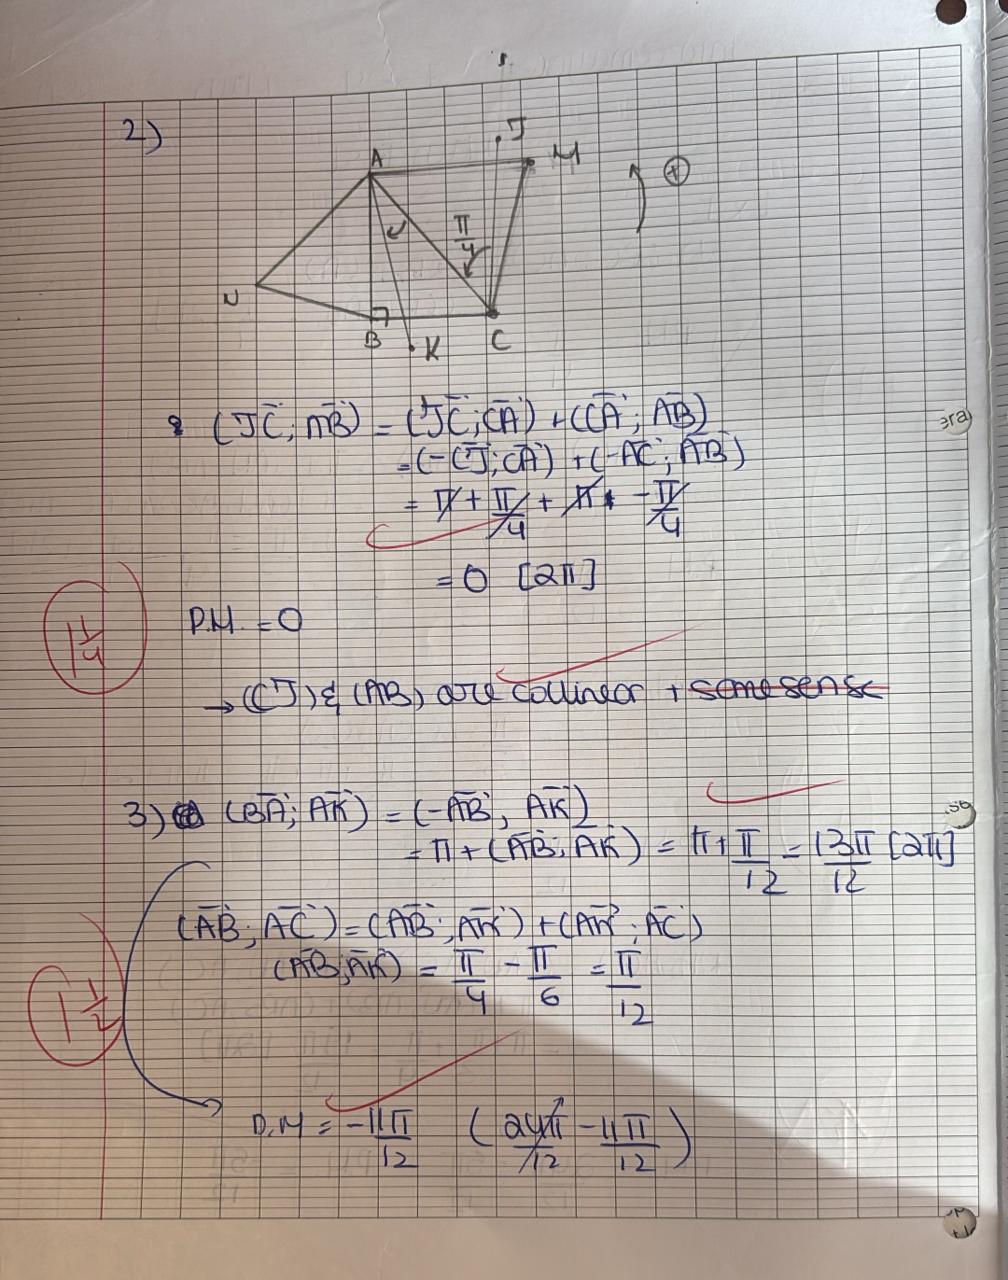 2)
A
J
M
⊕
π/4
N
B
K
C
(JC; AB) = (JC; CA) + (CA; AB)
= (-CJ; CA) + (-AC; AB)
= π + π/4 + π - π/4
= 0 [2π]
P.M. = 0
1 1/4
→ (CJ) & (AB) are collinear + same sense
3) (BA; AK) = (-AB, AK)
= π + (AB; AK) = π + π/12 = 13π/12 [2π]
(AB; AC) = (AB; AK) + (AK; AC)
(AB; AK) = π/4 - π/6 = π/12
1 1/2
D.M = -11π/12 (24π/12 - 11π/12)